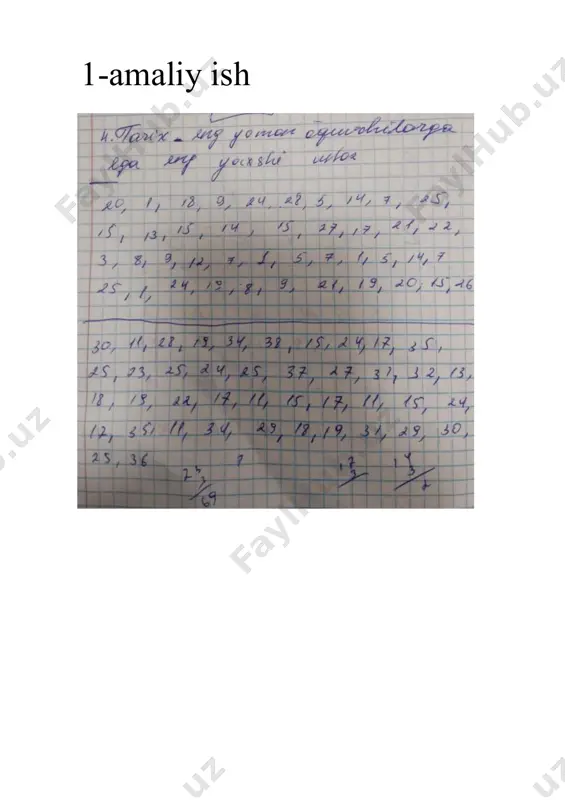 1-amaliy ish
4. Tarix - eng yomon o'quvchilarga
ega eng yaxshi ustoz
20, 1, 18, 9, 24, 28, 5, 14, 7, 25,
15, 13, 15, 14, 15, 27, 17, 21, 22,
3, 8, 9, 12, 7, 1, 5, 7, 1, 5, 14, 7
25, 1, 24, 12, 8, 9, 21, 19, 20, 15, 26
30, 11, 28, 19, 34, 38, 15, 24, 17, 35,
25, 23, 25, 24, 25, 37, 27, 31, 32, 13,
18, 19, 22, 17, 11, 15, 17, 11, 15, 24,
17, 35, 11, 34, 29, 18, 19, 31, 29, 30,
25, 36
FaylHub.uz
FaylHub.uz
FaylHub.uz